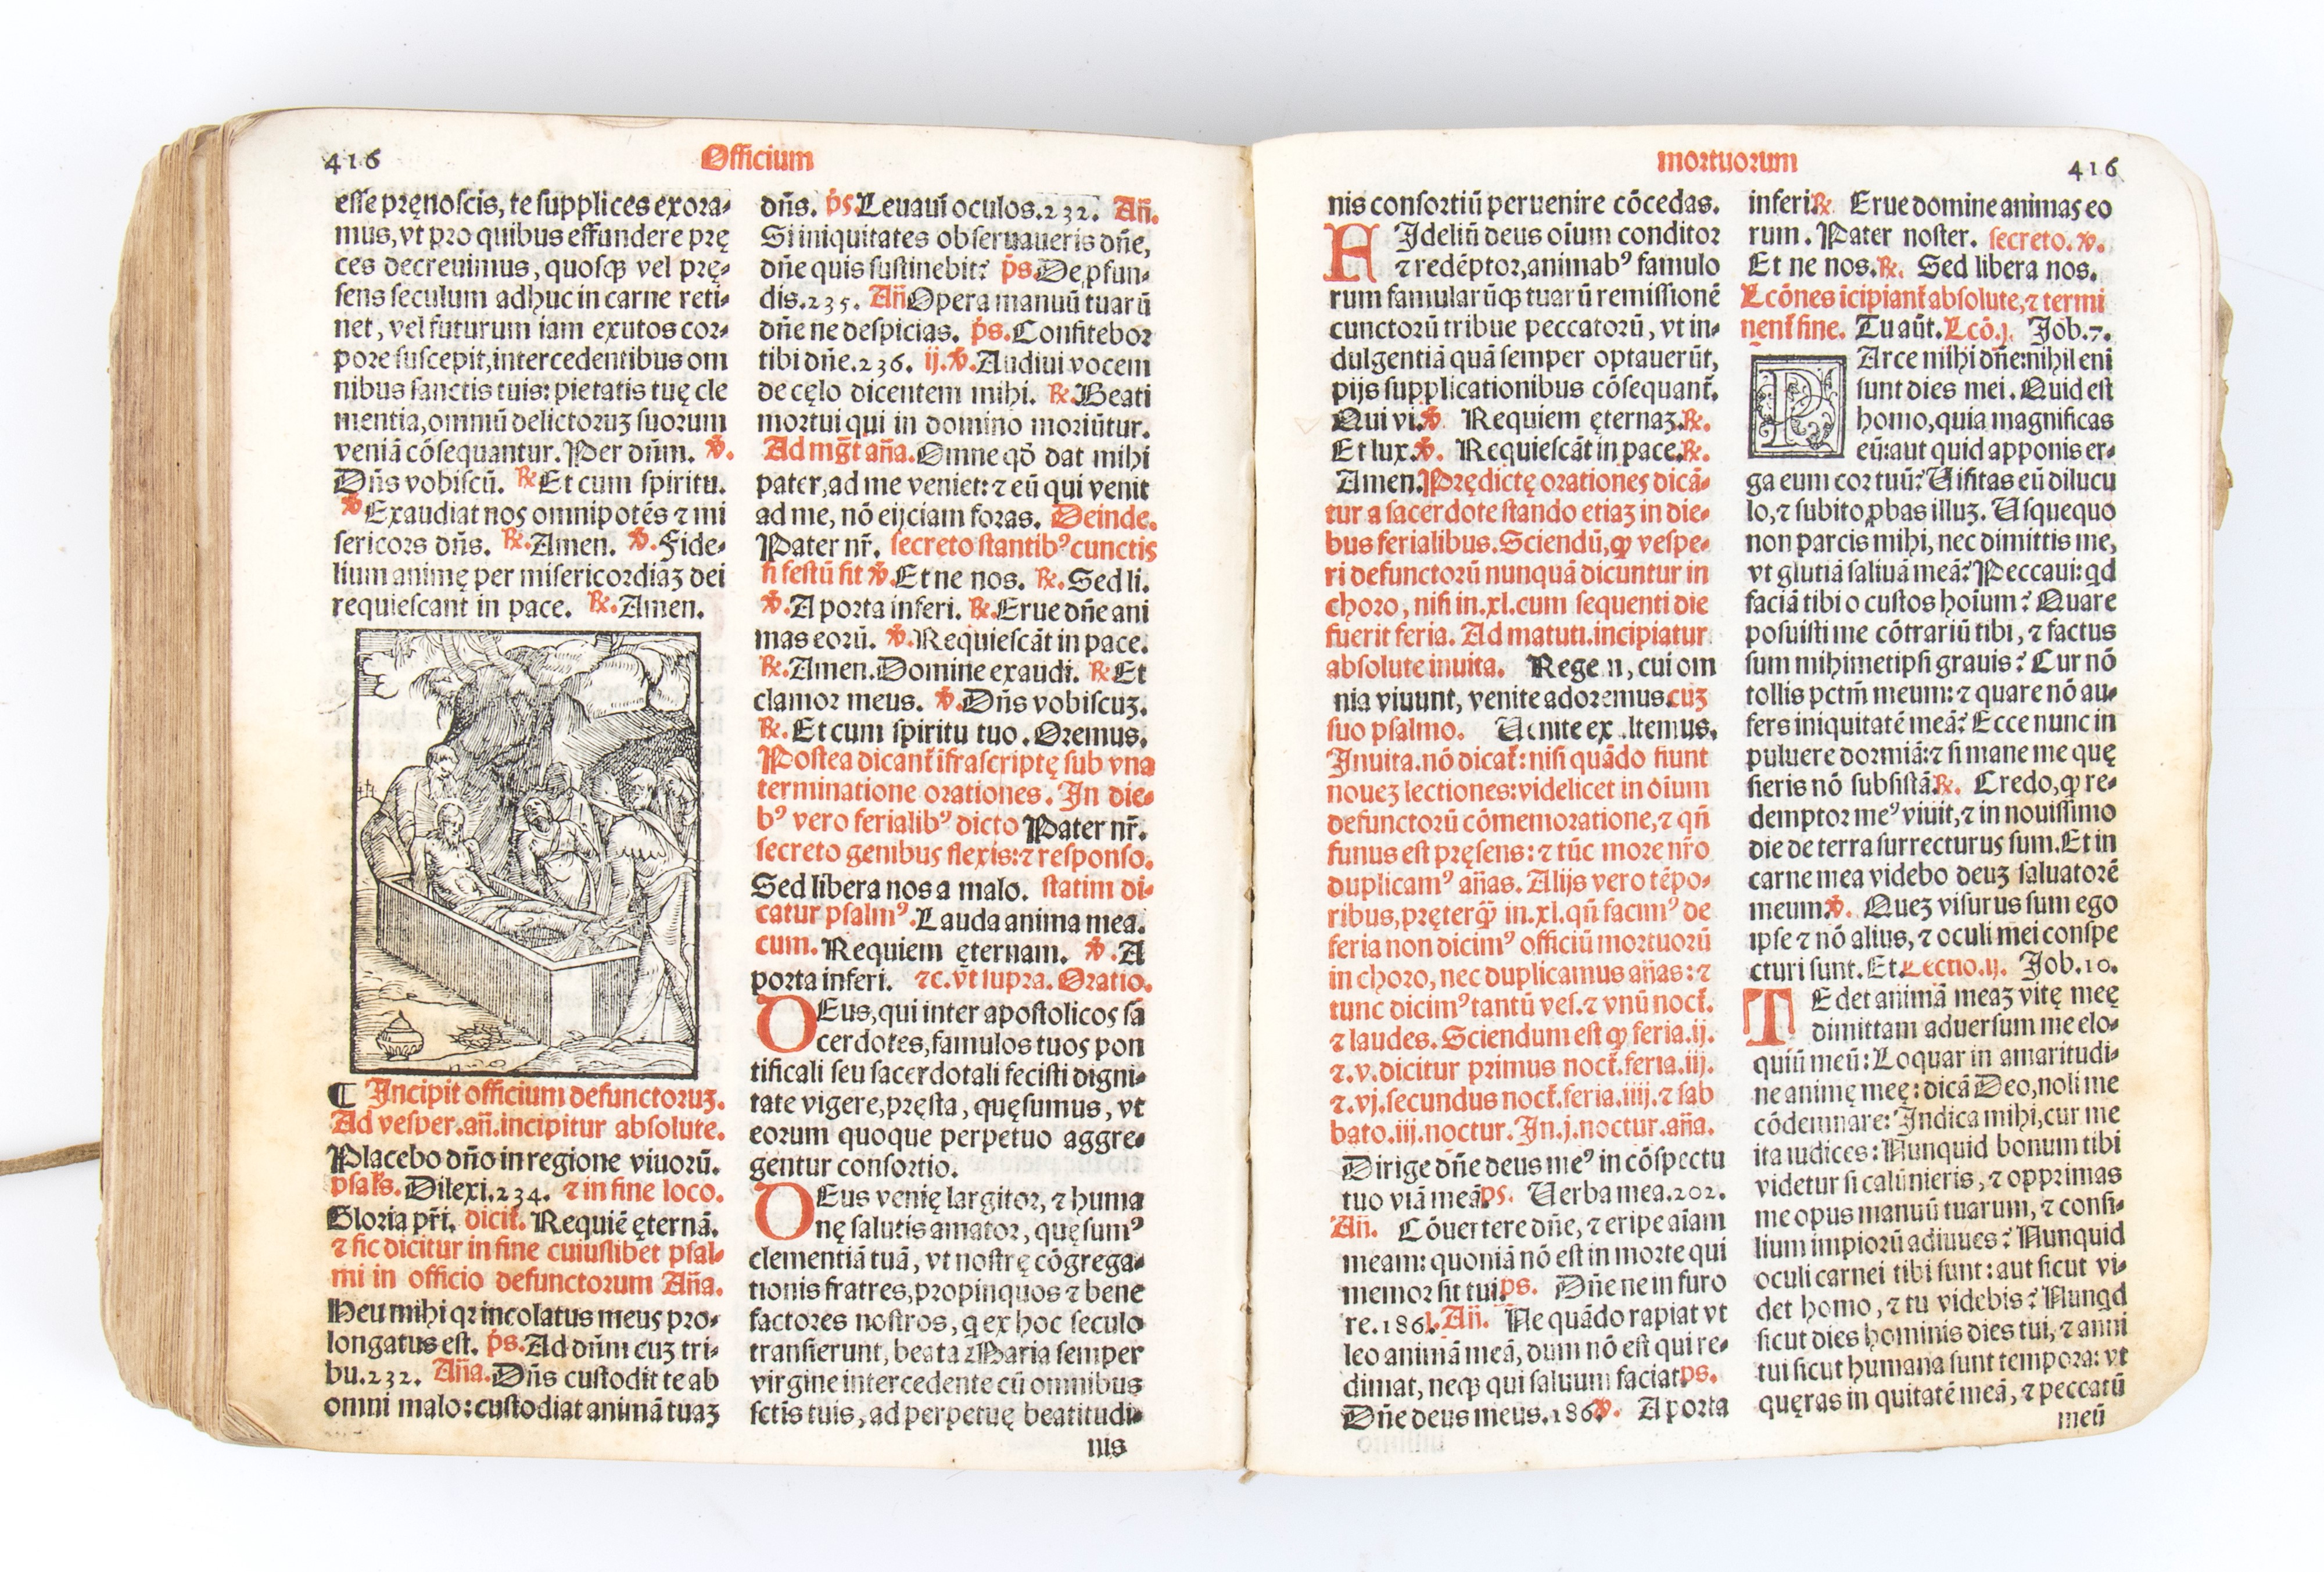 416
Officium
esse pręnoscis, te supplices exora⸗
mus, vt pro quibus effundere prę
ces decreuimus, quosqꝫ vel prę⸗
sens seculum adhuc in carne reti⸗
net, vel futurum iam exutos cor⸗
pore suscepit, intercedentibus om
nibus sanctis tuis: pietatis tuę cle
mentia, omniū delictoruꝫ suorum
veniā cōsequantur. Per dn̄m. ℣.
Dn̄s vobiscū. ℟ Et cum spiritu.
℣ Exaudiat nos omnipotēs ⁊ mi
sericors dn̄s. ℟. Amen. ℣. Fide⸗
lium animę per misericordiaꝫ dei
requiescant in pace. ℟. Amen.
¶ Incipit officium defunctoruꝫ.
Ad vesper. an̄. incipitur absolute.
Placebo dn̄o in regione viuorū.
psalꝰ. Dilexi. 234. ⁊ in fine loco.
Gloria pr̄i. dicit̄. Requiē ęternā.
⁊ sic dicitur in fine cuiuslibet psal⸗
mi in officio defunctorum An̄a.
Heu mihi qꝛ incolatus meus pro⸗
longatus est. ps. Ad dn̄m cuꝫ tri⸗
bu. 232. An̄a. Dn̄s custodit te ab
omni malo: custodiat animā tuaꝫ
dn̄s. ps. Leuaui oculos. 232. An̄.
Si iniquitates obseruaueris dn̄e,
dn̄e quis sustinebit? ps. De ꝓfun⸗
dis. 235. An̄ Opera manuū tuarū
dn̄e ne despicias. ps. Confitebor
tibi dn̄e. 236. ij. ℣. Audiui vocem
de cęlo dicentem mihi. ℟. Beati
mortui qui in domino moriūtur.
Ad mḡt an̄a. Omne qō dat mihi
pater, ad me veniet: ⁊ eū qui venit
ad me, nō eijciam foras. Deinde.
Pater nr̄. secreto stantibꝰ cunctis
si festū sit ℣. Et ne nos. ℟. Sed li.
℣. A porta inferi. ℟. Erue dn̄e ani
mas eorū. ℣. Requiescāt in pace.
℟. Amen. Domine exaudi. ℟ Et
clamor meus. ℣. Dn̄s vobiscuꝫ.
℟. Et cum spiritu tuo. Oremus.
Postea dicant̄ īfrascriptę sub vna
terminatione orationes. In die⸗
bꝰ vero ferialibꝰ dicto Pater nr̄.
secreto genibus flexis: ⁊ responso.
Sed libera nos a malo. statim di⸗
catur psalmꝰ. Lauda anima mea.
cum. Requiem ęternam. ℣. A
porta inferi. ⁊c. vt supra. Oratio.
DEus, qui inter apostolicos sa
cerdotes, famulos tuos pon
tificali seu sacerdotali fecisti digni⸗
tate vigere, pręsta, quęsumus, vt
eorum quoque perpetuo aggre⸗
gentur consortio.
DEus venię largitor, ⁊ huma
nę salutis amator, quęsumꝰ
clementiā tuā, vt nostrę cōgrega⸗
tionis fratres, propinquos ⁊ bene
factores nostros, q ex hoc seculo
transierunt, beata Maria semper
virgine intercedente cū omnibus
sctīs tuis, ad perpetuę beatitudi⸗
nis
mortuorum
416
nis consortiū peruenire cōcedas.
FIdeliū deus oīum conditor
⁊ redēptor, animabꝰ famulo
rum famularūqꝫ tuarū remissionē
cunctorū tribue peccatorū, vt in⸗
dulgentiā quā semper optauerūt,
pijs supplicationibus cōsequant̄.
Qui vi. ℣. Requiem ęternaꝫ. ℟.
Et lux. ℣. Requiescāt in pace. ℟.
Amen. Prędictę orationes dicā⸗
tur a sacerdote stando etiaꝫ in die⸗
bus ferialibus. Sciendū, ꝙ vespe⸗
ri defunctorū nunquā dicuntur in
choro, nisi in. xl. cum sequenti die
fuerit feria. Ad matuti. incipiatur
absolute inuita. Regem, cui om
nia viuunt, venite adoremus. cuꝫ
suo psalmo. Venite exultemus.
Inuita. nō dicat̄: nisi quādo fiunt
noueꝫ lectiones: videlicet in oīum
defunctorū cōmemoratione, ⁊ qn̄
funus est pręsens: ⁊ tūc more nr̄o
duplicamꝰ an̄as. Alijs vero tēpo⸗
ribus, pręterꝙ̄ in. xl. qn̄ facimꝰ de
feria non dicimꝰ officiū mortuorū
in choro, nec duplicamus an̄as: ⁊
tunc dicimꝰ tantū ves. ⁊ vnū noct̄.
⁊ laudes. Sciendum est ꝙ feria. ij.
⁊. v. dicitur primus noct̄. feria. iij.
⁊. vj. secundus noct̄. feria. iiij. ⁊ sab
bato. iij. noctur. In. j. noctur. an̄a.
Dirige dn̄e deus meꝰ in cōspectu
tuo viā meā. ps. Verba mea. 202.
An̄. Cōuertere dn̄e, ⁊ eripe aīam
meam: quoniā nō est in morte qui
memor sit tui. ps. Dn̄e ne in furo
re. 186. An̄. Ne quādo rapiat vt
leo animā meā, dum nō est qui re⸗
dimat, neqꝫ qui saluum faciat. ps.
Dn̄e deus meus. 186. ℣. A porta
inferi. ℟. Erue domine animas eo
rum. Pater noster. secreto. ℣.
Et ne nos. ℟. Sed libera nos.
Lcōnes īcipiant̄ absolute, ⁊ termi
nent̄ sine. Tu aūt. Lcō. j. Job. 7.
PArce mihi dn̄e: nihil eni
sunt dies mei. Quid est
homo, quia magnificas
eū: aut quid apponis er⸗
ga eum cor tuū? Visitas eū dilucu
lo, ⁊ subito ꝓbas illuꝫ. Vsquequo
non parcis mihi, nec dimittis me,
vt glutiā saliuā meā? Peccaui: qd
faciā tibi o custos hoīum? Quare
posuisti me cōtrariū tibi, ⁊ factus
sum mihimetipsi grauis? Cur nō
tollis pctm̄ meum: ⁊ quare nō au⸗
fers iniquitatē meā? Ecce nunc in
puluere dormiā: ⁊ si mane me quę
sieris nō subsistā. ℟. Credo, ꝙ re⸗
demptor meꝰ viuit, ⁊ in nouissimo
die de terra surrecturus sum. Et in
carne mea videbo deuꝫ saluatorē
meum. ℣. Queꝫ visurus sum ego
ipse ⁊ nō alius, ⁊ oculi mei conspe
cturi sunt. Et. Lectio. ij. Job. 10.
TEdet animā meaꝫ vitę meę
dimittam aduersum me elo⸗
quiū meū: Loquar in amaritudi⸗
ne animę meę: dicā Deo, noli me
cōdemnare: Indica mihi, cur me
ita iudices: Nunquid bonum tibi
videtur si calūnieris, ⁊ opprimas
me opus manuū tuarum, ⁊ consi⸗
lium impiorū adiuues? Nunquid
oculi carnei tibi sunt: aut sicut vi⸗
det homo, ⁊ tu videbis? Nunqd
sicut dies hominis dies tui, ⁊ anni
tui sicut humana sunt tempora: vt
quęras iniquitatē meā, ⁊ peccatū
meū